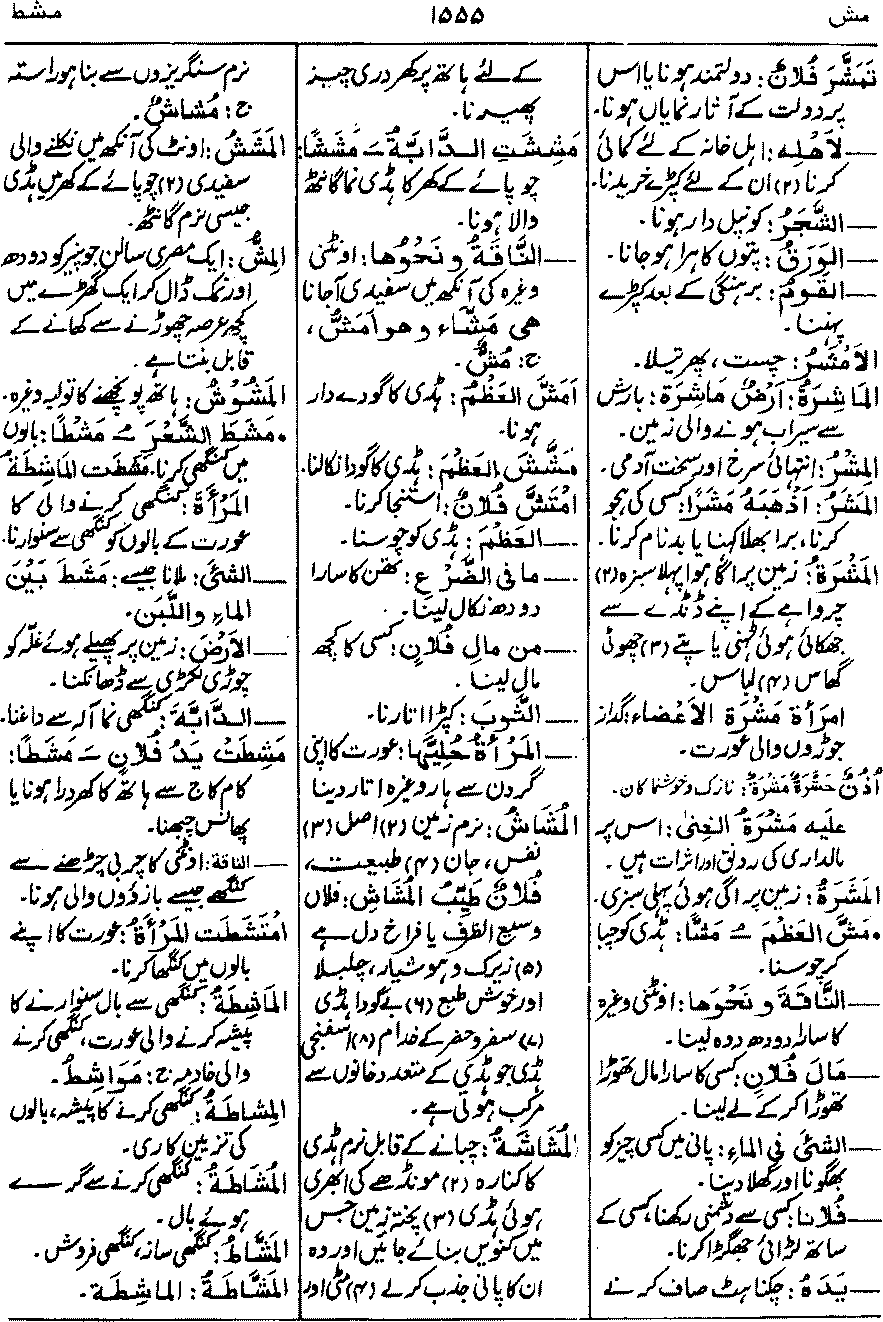 مش
۱۵۵۵
مشط
تَمَشَّرَ فُلَانٌ: دولتمند ہونا یا اس
پر دولت کے آثار نمایاں ہونا۔
— لِاَهْلِه: اہل خانہ کے لئے کمائی
کرنا (۲) ان کے لئے کپڑے خریدنا۔
— الشَّجَرُ: کونپل دار ہونا۔
— الوَرَقُ: پتوں کا ہرا ہو جانا۔
— القَومُ: برہنگی کے بعد کپڑے
پہننا۔
الاَمْشَرُ: چست، پھرتیلا۔
المَاشِرَةُ: اَرْضٌ مَاشِرَة: بارش
سے سیراب ہونے والی زمین۔
المِشْرُ: انتہائی سرخ اور سخت آدمی۔
المَشَرُ: اَذْهَبَهُ مَشَرًا: کسی کی ہجو
کرنا، برا بھلا کہنا یا بدنام کرنا۔
المَشْرَةُ: زمین پر اگا ہوا پہلا سبزہ (۲)
چرواہے کے اپنے ڈنڈے سے
جھکائی ہوئی ٹہنی یا پتے (۳) چھوٹی
گھاس (۴) لباس۔
امرَأة مَشْرَة الاَعْضَاء: گداز
جوڑوں والی عورت۔
اُذُنٌ حَشْرَةٌ مَشْرَةٌ: نازک و خوشنما کان۔
علَیه مَشْرَةُ الغِنىٰ: اس پر
مالداری کی رونق اور اثرات ہیں۔
المَشَرَةُ: زمین پر اگی ہوئی پہلی سبزی۔
• مَشَّ العَظْمَ ـُ مَشًّا: ہڈی کو چبا
کر چوسنا۔
— النَّاقَةَ و نَحْوَها: اونٹنی وغیرہ
کا سارا دودھ دوہ لینا۔
— مَالَ فُلَانٍ: کسی کا سارا مال تھوڑا
تھوڑا کر کے لے لینا۔
— الشئَ فِی المَاءِ: پانی میں کسی چیز کو
بھگونا اور گھلا دینا۔
— فُلَانًا: کسی سے دشمنی رکھنا، کسی کے
ساتھ لڑائی جھگڑا کرنا۔
— یَدَهُ: چکناہٹ صاف کرنے
کے لئے ہاتھ پر کھردری چیز
پھیرنا۔
مَشِشَتِ الدَّابَّةُ ـَ مَشَشًا:
چوپائے کے کھر کا ہڈی نما گانٹھ
والا ہونا۔
— النَّاقَةُ و نَحْوُها: اونٹنی
وغیرہ کی آنکھ میں سفیدی آجانا
هی مَشَّاء و هو اَمَشُّ،
ج: مُشٌّ۔
اَمَشَّ العَظْمُ: ہڈی کا گودے دار
ہونا۔
مَشَّشَ العَظْمَ: ہڈی کا گودا نکالنا۔
امْتَشَّ فُلَانٌ: استنجا کرنا۔
— العَظْمَ: ہڈی کو چوسنا۔
— ما فی الضَّرْعِ: تھن کا سارا
دودھ نکال لینا۔
— من مالِ فُلَانٍ: کسی کا کچھ
مال لینا۔
— الثَّوبَ: کپڑا اتارنا۔
— المَرْأةُ حُلِیَّها: عورت کا اپنی
گردن سے ہار وغیرہ اتار دینا
المُشَاشُ: نرم زمین (۲) اصل (۳)
نفس، جان (۴) طبیعت،
فُلَانٌ طَیِّبُ المُشَاشِ: فلاں
وسیع الظرف یا فراخ دل ہے
(۵) زیرک و ہوشیار، چلبلا
اور خوش طبع (۶) بے گودا ہڈی
(۷) سفر و حضر کے خدام (۸) اسفنجی
ہڈی جو ہڈی کے متعدد خانوں سے
مرکب ہوتی ہے۔
المُشَاشَةُ: چبانے کے قابل نرم ہڈی
کا کنارہ (۲) مونڈھے کی ابھری
ہوئی ہڈی (۳) پختہ زمین جس
میں کنویں بنائے جائیں اور وہ
ان کا پانی جذب کر لے (۴) مٹی اور
نرم سنگریزوں سے بنا ہوا راستہ
ج: مُشَاشٌ۔
المَشَشُ: اونٹ کی آنکھ میں نکلنے والی
سفیدی (۲) چوپائے کے کھر میں ہڈی
جیسی نرم گانٹھ۔
المِشُّ: ایک مصری سالن جو پنیر کو دودھ
اور نمک ڈال کر ایک گھڑے میں
کچھ عرصہ چھوڑنے سے کھانے کے
قابل بنتا ہے۔
المَشُوْشُ: ہاتھ پونچھنے کا تولیہ وغیرہ۔
• مَشَطَ الشَّعْرَ ـُ مَشْطًا: بالوں
میں کنگھی کرنا۔ مَشَطَت المَاشِطَةُ
المَرْأَةَ: کنگھی کرنے والی کا
عورت کے بالوں کو کنگھی سے سنوارنا۔
— الشئَ: ملانا جیسے: مَشَطَ بَیْنَ
المَاءِ واللَّبَن۔
— الاَرْضَ: زمین پر پھیلے ہوئے غلّہ کو
چوڑی لکڑی سے ڈھانکنا۔
— الدَّابَّةَ: کنگھی نما آلہ سے داغنا۔
مَشِطَتْ یَدُ فُلَانٍ ـَ مَشَطًا:
کام کاج سے ہاتھ کا کھردرا ہونا یا
پھانس چبھنا۔
— الناقة: اونٹنی کا چربی چڑھنے سے
کنگھے جیسے بازوؤں والی ہونا۔
امْتَشَطَت المَرْأَةُ: عورت کا اپنے
بالوں میں کنگھا کرنا۔
المَاشِطَةُ: کنگھی سے بال سنوارنے کا
پیشہ کرنے والی عورت، کنگھی کرنے
والی خادمہ ج: مَوَاشِطُ۔
المِشَاطَةُ: کنگھی کرنے کا پیشہ، بالوں
کی تزیین کاری۔
المُشَاطَةُ: کنگھی کرنے سے گرے
ہوئے بال۔
المَشَّاطُ: کنگھی ساز، کنگھی فروش۔
المَشَّاطَةُ: الماشِطَة۔